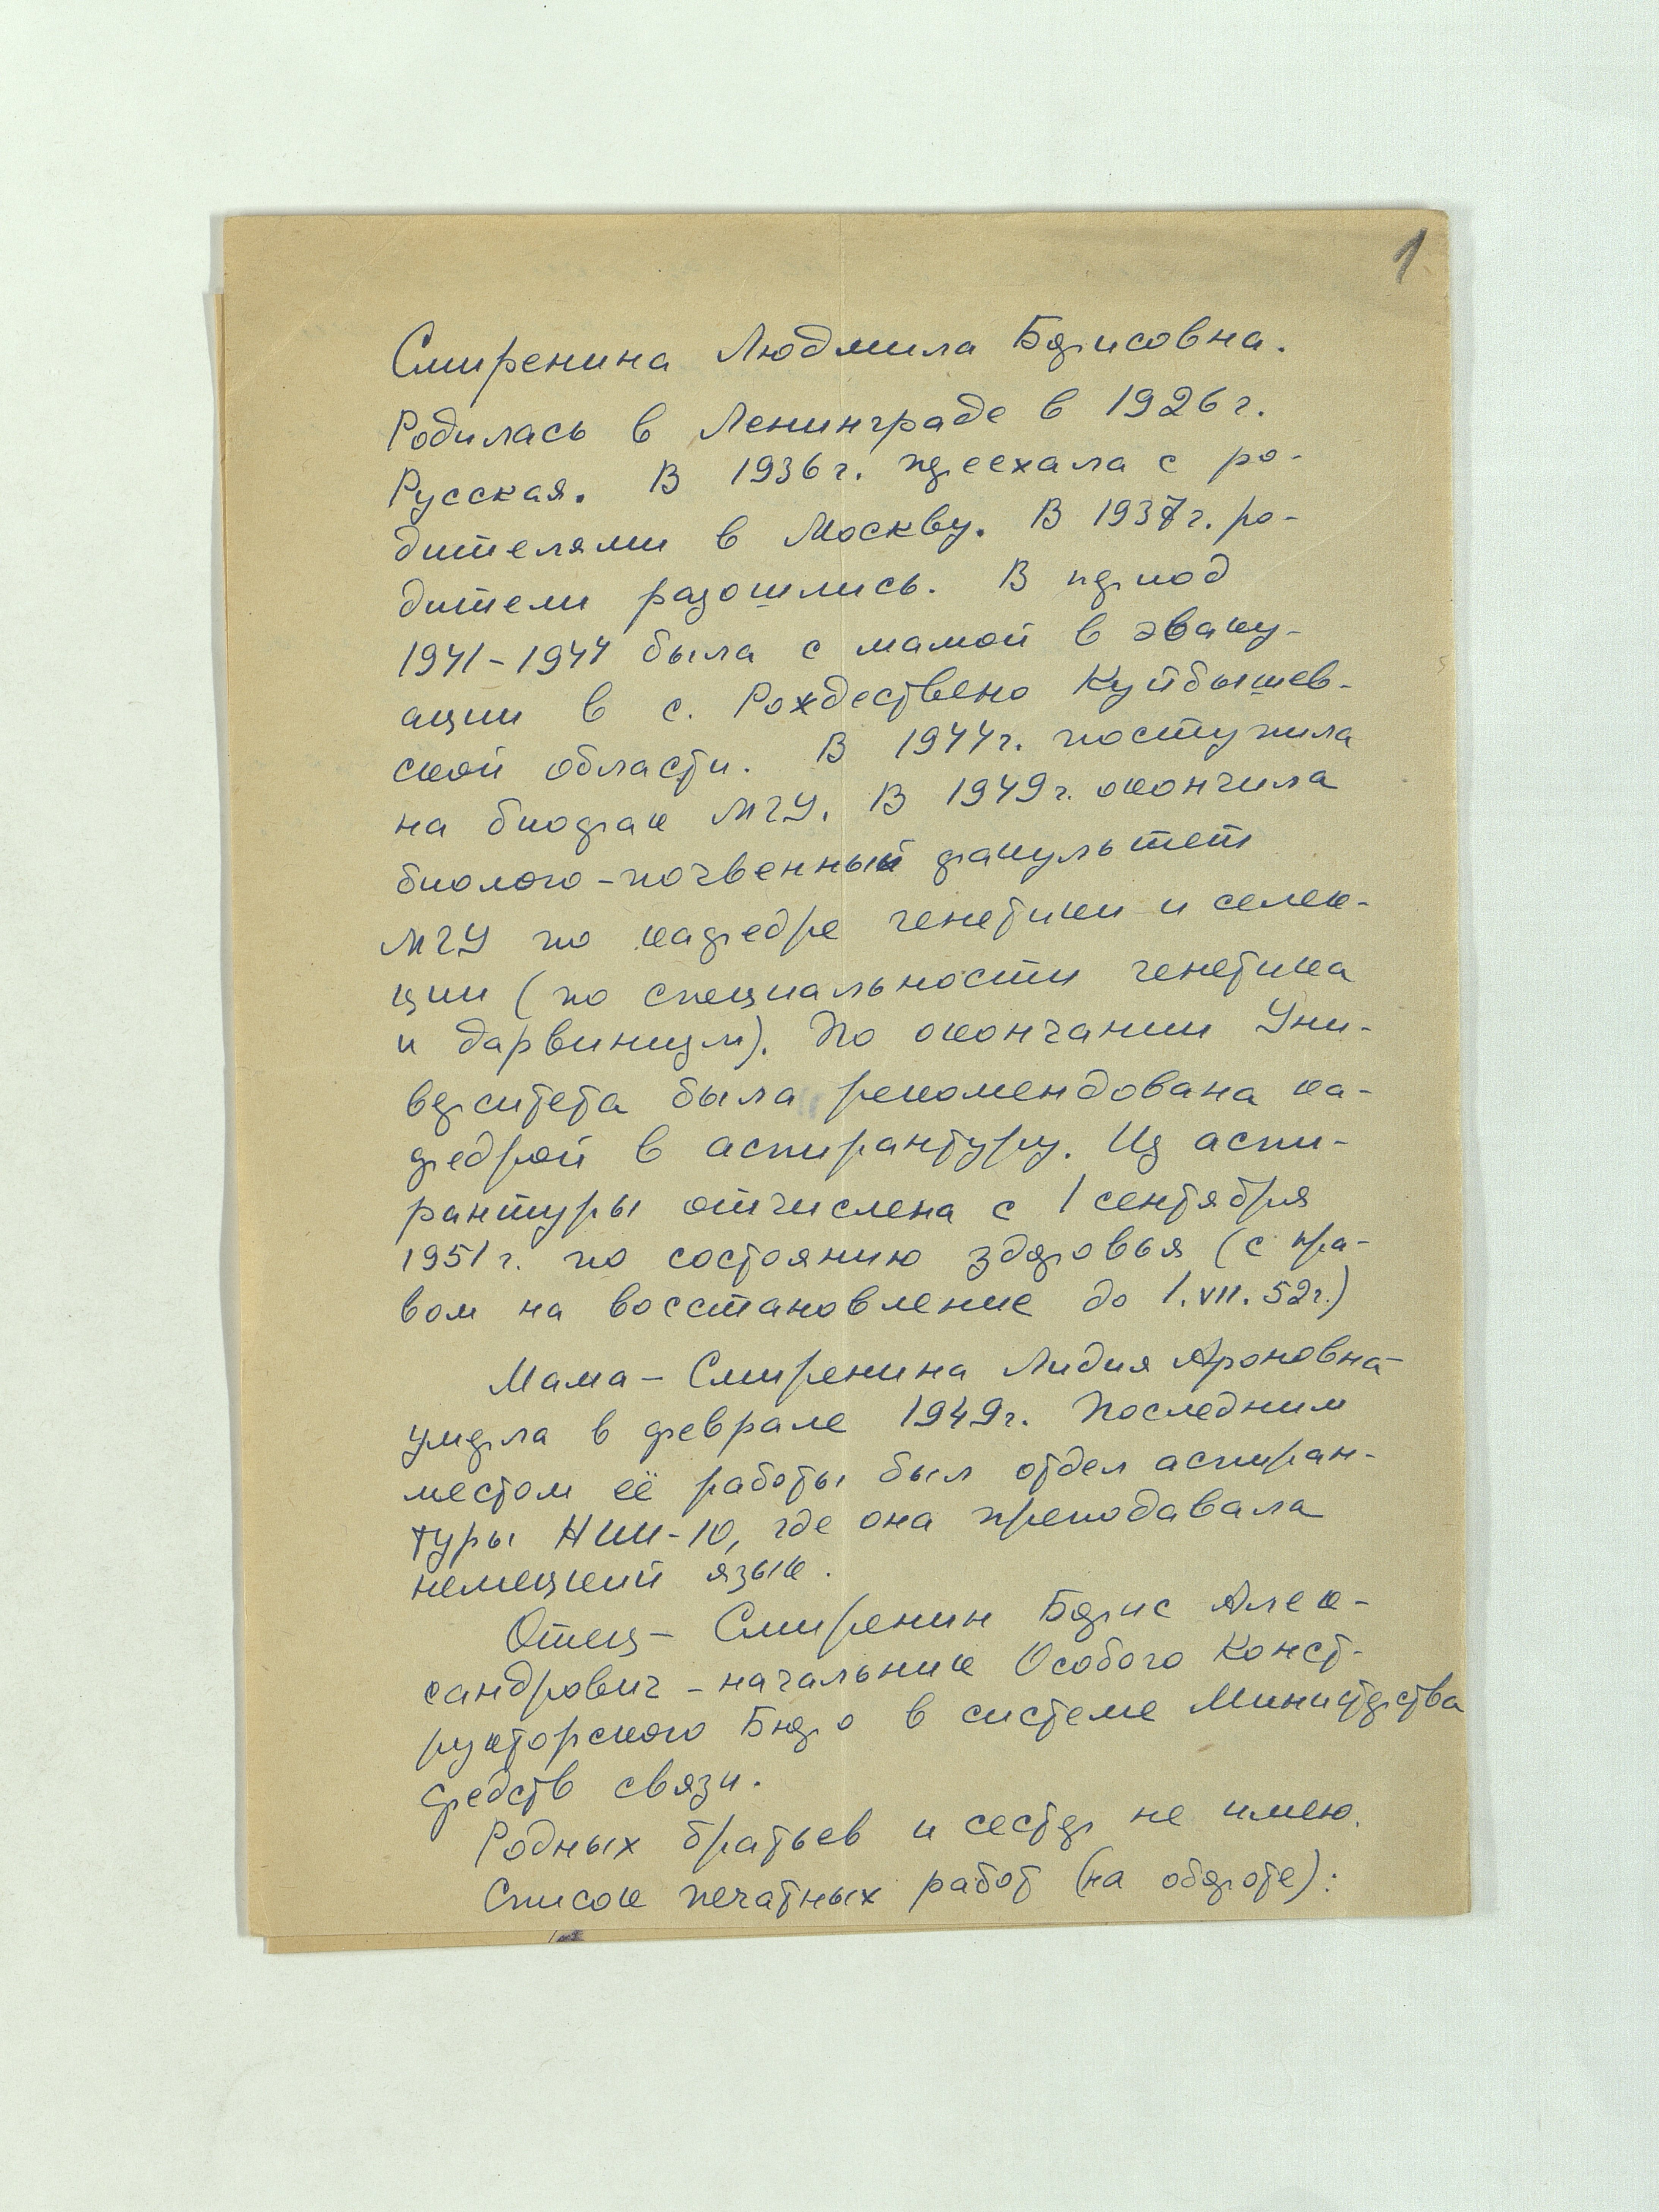 1
Смиренина Людмила Борисовна.
Родилась в Ленинграде в 1926 г.
Русская. В 1936 г. переехала с ро-
дителями в Москву. В 1937 г. ро-
дители разошлись. В период
1941-1944 была с мамой в эваку-
ации в с. Рождествено Куйбышев-
ской области. В 1944 г. поступила
на биофак МГУ. В 1949 г. окончила
биолого-почвенный факультет
МГУ по кафедре генетики и селек-
ции (по специальности генетика
и дарвинизм). По окончании Уни-
верситета была рекомендована ка-
федрой в аспирантуру. Из аспи-
рантуры отчислена с 1 сентября
1951 г. по состоянию здоровья (с пра-
вом на восстановление до 1.VII.52 г.)
Мама - Смиренина Лидия Ароновна -
умерла в феврале 1949 г. Последним
местом её работы был отдел аспиран-
туры НИИ-10, где она преподавала
немецкий язык.
Отец - Смиренин Борис Алек-
сандрович - начальник Особого Конст-
рукторского Бюро в системе Министерства
средств связи.
Родных братьев и сестер не имею.
Список печатных работ (на обороте):